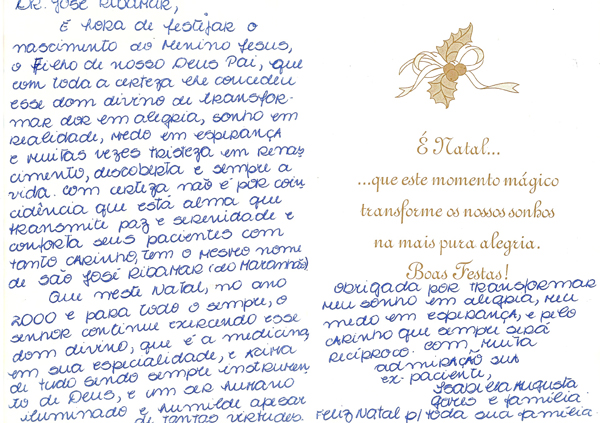 DR. JOSÉ RIBAMAR,
É HORA DE FESTEJAR O
NASCIMENTO DO MENINO JESUS,
O FILHO DE NOSSO DEUS PAI, QUE
COM TODA A CERTEZA LHE CONCEDEU
ESSE DOM DIVINO DE TRANSFOR-
MAR DOR EM ALEGRIA, SONHO EM
REALIDADE, MEDO EM ESPERANÇA
E MUITAS VEZES TRISTEZA EM RENAS
CIMENTO, DESCOBERTA E SEMPRE A
VIDA. COM CERTEZA NÃO É POR COIN
CIDÊNCIA QUE ESTÁ ALMA QUE
TRANSMITE PAZ E SERENIDADE E
CONFORTA SEUS PACIENTES COM
TANTO CARINHO, TEM O MESMO NOME
DE SÃO JOSÉ RIBAMAR (DO MARANHÃO)
QUE NESTE NATAL, NO ANO
2000 E PARA TODO O SEMPRE, O
SENHOR CONTINUE EXERCENDO ESSE
DOM DIVINO, QUE É A MEDICINA,
EM SUA ESPECIALIDADE, E ACIMA
DE TUDO SENDO SEMPRE INSTRUMEN
TO DE DEUS, E UM SER HUMANO
ILUMINADO E HUMILDE APESAR
DE TANTAS VIRTUDES.
É Natal...
...que este momento mágico
transforme os nossos sonhos
na mais pura alegria.
Boas Festas!
OBRIGADA POR TRANSFORMAR
MEU SONHO EM ALEGRIA, MEU
MEDO EM ESPERANÇA, E PELO
CARINHO QUE SEMPRE SERÁ
RECÍPROCO. COM MUITA
ADMIRAÇÃO SUA
EX-PACIENTE,
AUGUSTA
E FAMÍLIA
FELIZ NATAL P/ TODA SUA FAMÍLIA